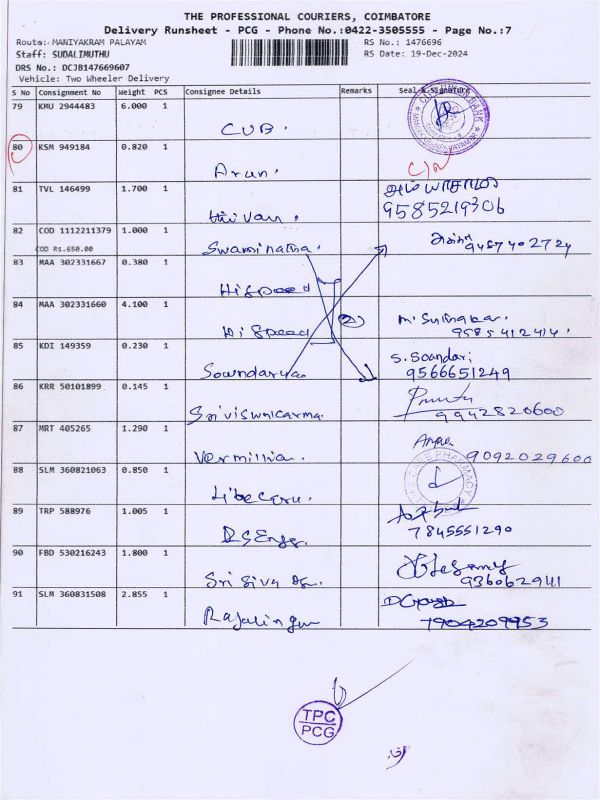 THE PROFESSIONAL COURIERS, COIMBATORE
Delivery Runsheet - PCG - Phone No.:0422-3505555 - Page No.:7
Route: MANIYAKRAM PALAYAM
RS No.: 1476696
Staff: SUDALIMUTHU
RS Date: 19-Dec-2024
DRS No.: DCJB147669607
Vehicle: Two Wheeler Delivery
S No Consignment No Weight PCS Consignee Details Remarks Seal & Signature
79 KMU 2944483 6.000 1 CUB.
80 KSM 949184 0.820 1 Arun.
81 TVL 146499 1.700 1
9585219306
82 COD 1112211379 1.000 1 Swaminatha.
COD Rs.650.00
9487402724
83 MAA 302331667 0.380 1 Hispeed
84 MAA 302331660 4.100 1 Hispeed 2
9585412414.
85 KDI 149359 0.230 1 Soundarya S. Soundari
9566651249
86 KRR 50101899 0.145 1 Sriviswakarma.
9942820600
87 MRT 405265 1.290 1 Vermillion.
9092029600
88 SLM 360821063 0.850 1
PHARMACY
89 TRP 588976 1.005 1 RS Engg.
7845551290
90 FBD 530216243 1.800 1 Sri Siva
9360629411
91 SLM 360831508 2.855 1 Rajalingam
7904209953
TPC
PCG